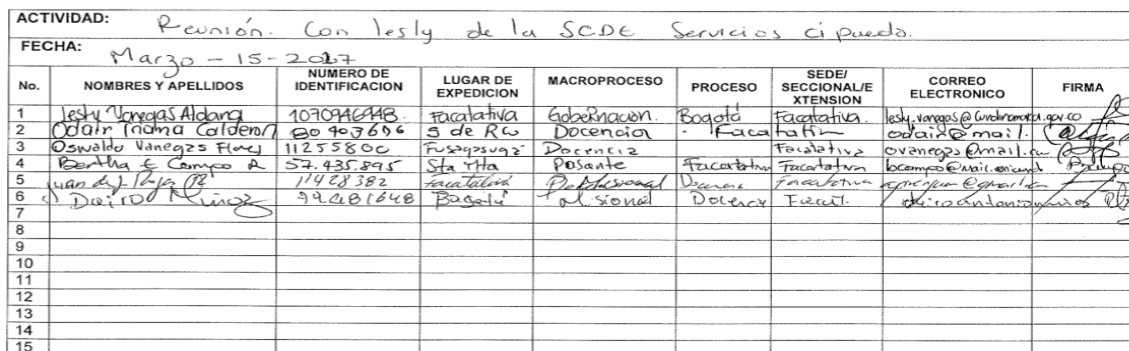 ACTIVIDAD: Reunión. Con lesly de la SCDE Servicios ci puedo.
FECHA: Marzo - 15 - 2017
No. NOMBRES Y APELLIDOS NUMERO DE IDENTIFICACION LUGAR DE EXPEDICION MACROPROCESO PROCESO SEDE/ SECCIONAL/E XTENSION CORREO ELECTRONICO FIRMA
1 Lesly Vanegas Aldana 1070946448 Facatativa Gobernacion. Bogotá Facatativa. lesly.vanegas@cundinamarca.gov.co
2 Odair Triana Calderon 80403686 S de Rio Docencia Facatativ odairt@mail.
3 Oswaldo Vanegas Flores 11255800 Fusagasuga Docencia Facatativa ovanegas@mail.
4 Bertha E Campo R 57.435.895 Sta Mta Pasante Facatativa Facatativa bcampo@
5 Juan de J. 11428382 Facatativá Profesional Docencia Facatativa
6 Dairo Muñoz 79481648 Bogotá Misional Docencia Facat.
7
8
9
10
11
12
13
14
15